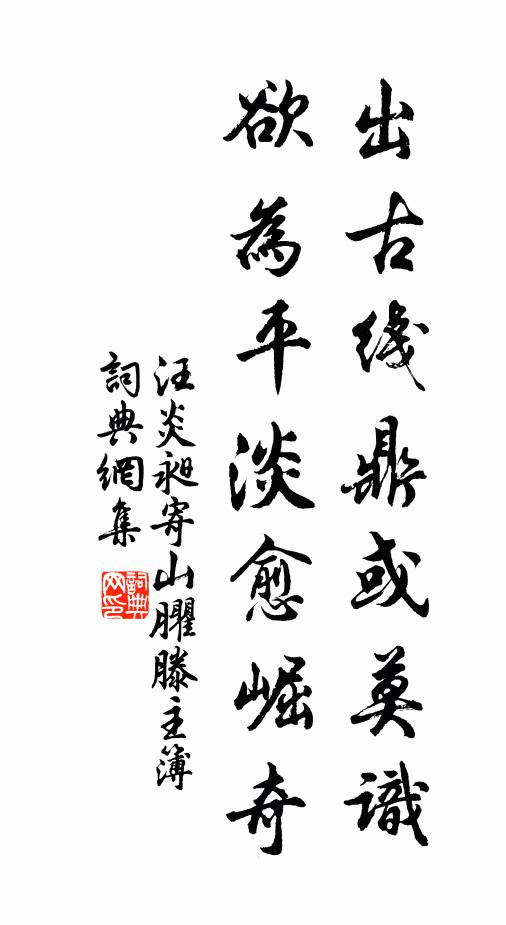 出古线鼎或莫識
欲為平淡愈崛奇
汪炎昶寄山臞滕主簿
詞典網集
詞典网印